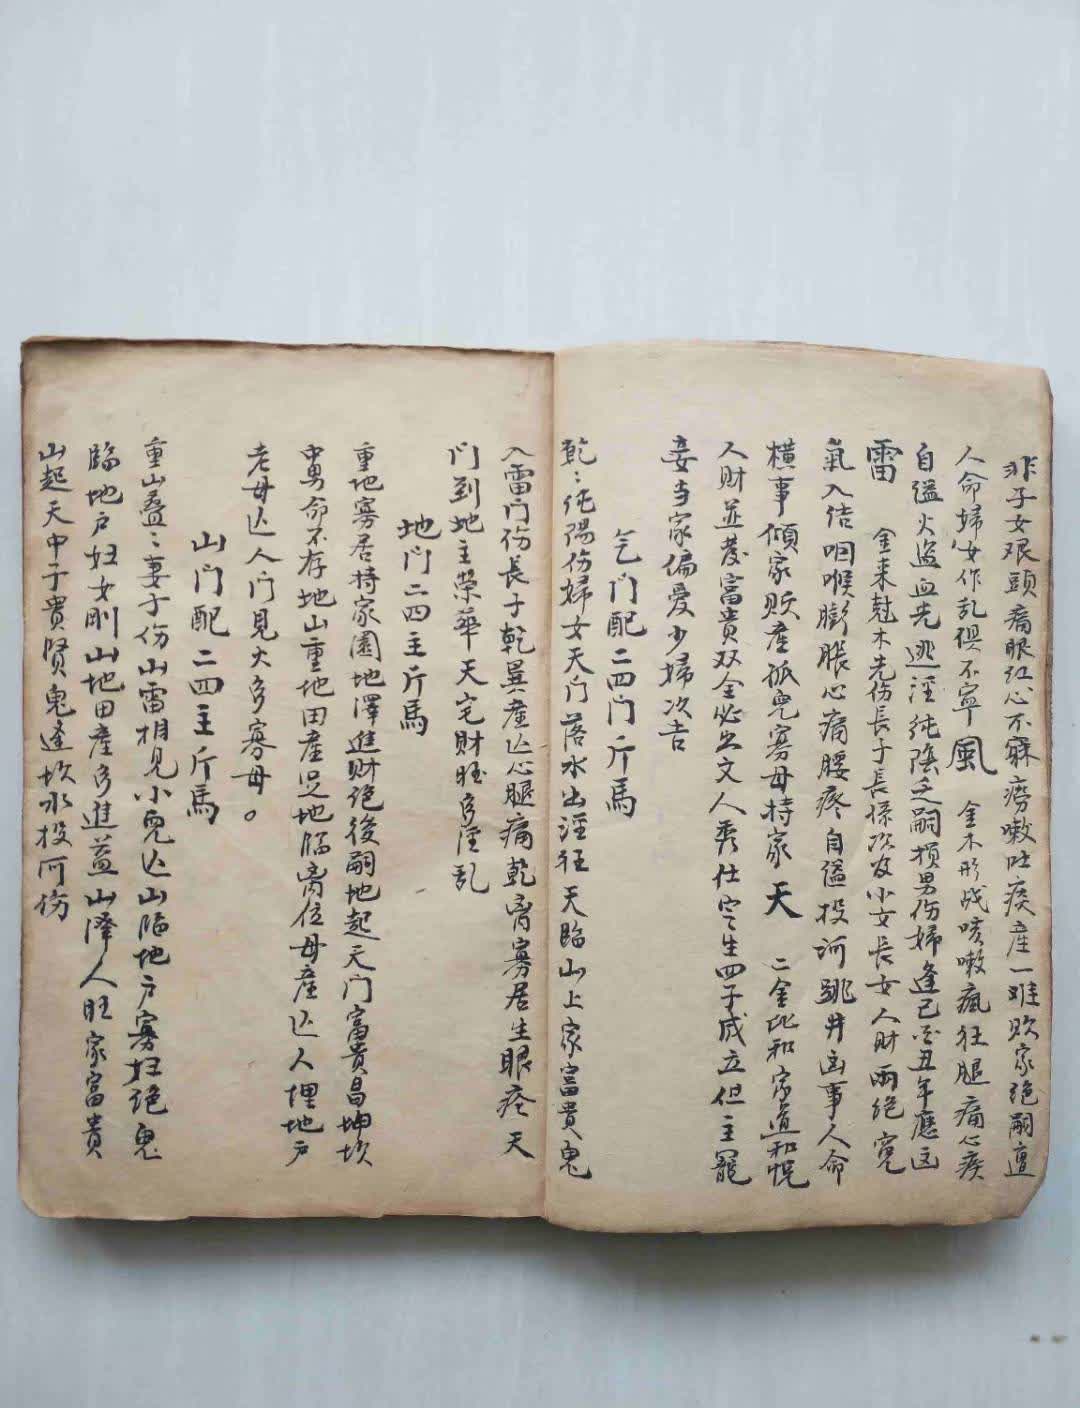 非子女艰頭痛眼红心不寐癆嗽吐痰産一难败家绝嗣亶
人命婦女作乱俱不寜風　金木形战咳嗽瘋狂腿痛心疾
自缢火盗血光逃淫纯陰乏嗣损男伤婦逢己酉丑年應凶
雷　金来尅木先伤長子長孫次及小女長女人财兩绝寃
氣入结咽喉膨脹心痛腰疼自缢投河跳井凶事人命
横事傾家败産孤兒寡母持家　天　二金比和家道和悦
人财並茂富貴双全必出文人秀仕生四子成立但主罷
妾当家偏爱少婦次吉
乞门配二四门斤馬
乾〻纯陽伤婦女天门落水出淫狂天臨山上家富貴鬼
入雷门伤長子乾巽産亾心腿痛乾离寡居生眼疼天
门到地主榮華天宅财旺多淫乱
地门二四主斤馬
重地寡居持家園地澤進财绝後嗣地起天门富貴昌坤坎
中男命不存地山重地田産足地臨离位母産亾人埋地户
老母亾人门見火多寡母。
山门配二四主斤馬
重山叠〻妻子伤山雷相見小兒亾山臨地户寡妇绝鬼
臨地户妇女剛山地田産多進益山澤人旺家富貴
山起天中子貴賢鬼逢坎水投河伤